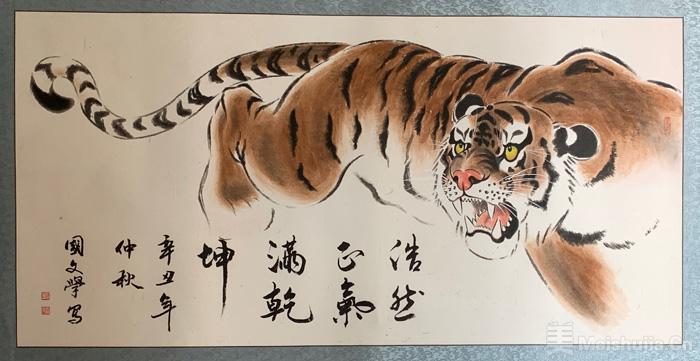 浩然
正氣
滿乾
坤
辛丑年
仲秋
國文學写
Meishujia.Cn